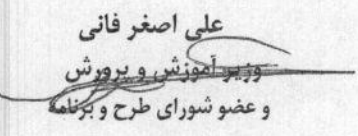 علی اصغر فانی
وزیر آموزش و پرورش
و عضو شورای طرح و برنامه